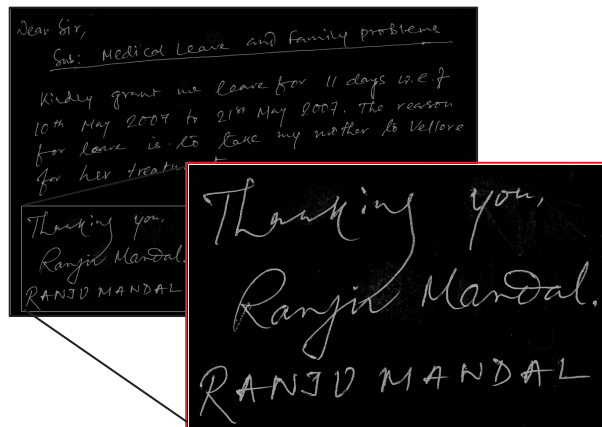 Dear Sir,
Sub: Medical Leave and Family problems
Kindly grant me leave for 11 days w.e.f
10th May 2007 to 21st May 2007. The reason
for leave is to take my mother to Vellore
for her
Thanking you,
Ranju Mandal.
RANJU MANDAL
Thanking you,
Ranju Mandal.
RANJU MANDAL